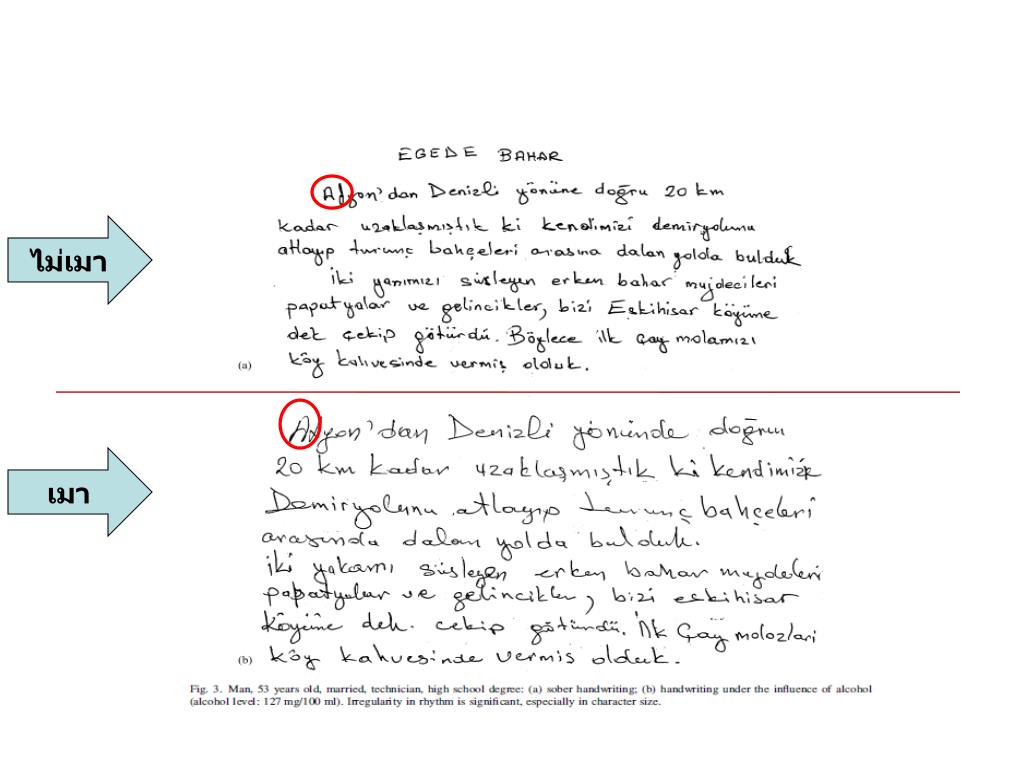 EGEDE BAHAR
Afyon'dan Denizli yönüne doğru 20 km
kadar uzaklaşmıştık ki kendimizi demiryolunu
ไม่เมา
atlayıp turunç bahçeleri arasına dalan yolda bulduk
İki yanımızı süsleyen erken bahar mujdecileri
papatyalar ve gelincikler, bizi Eskihisar köyüne
dek çekip götürdü. Böylece ilk Çay molamızı
(a) köy kahvesinde vermiş olduk.
Afyon'dan Denizli yönünde doğru
20 km kadar uzaklaşmıştık ki kendimizi
เมา
Demiryolunu atlayıp turunç bahçeleri
arasında dalan yolda bulduk.
iki yakamı süsleyen erken bahar mujdeleri
papatyalar ve gelincikler, bizi eskihisar
köyüne dek. çekip götürdü. İlk Çay molozları
(b) köy kahvesinde vermis olduk.
Fig. 3. Man, 53 years old, married, technician, high school degree: (a) sober handwriting; (b) handwriting under the influence of alcohol
(alcohol level: 127 mg/100 ml). Irregularity in rhythm is significant, especially in character size.